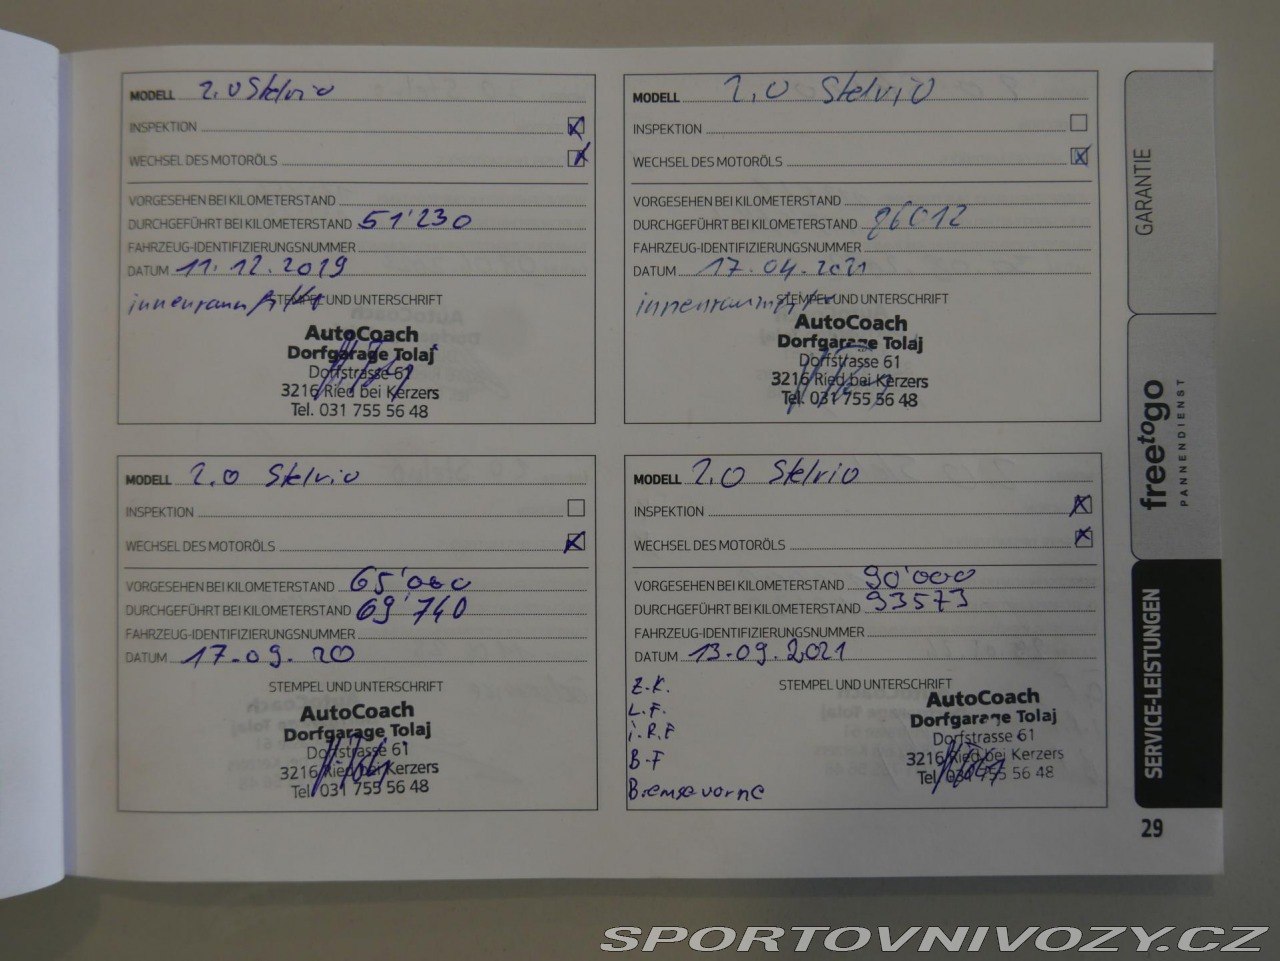 MODELL 2.0 Stelvio
INSPEKTION
WECHSEL DES MOTORÖLS
VORGESEHEN BEI KILOMETERSTAND
DURCHGEFÜHRT BEI KILOMETERSTAND 51'230
FAHRZEUG-IDENTIFIZIERUNGSNUMMER
DATUM 11.12.2019
STEMPEL UND UNTERSCHRIFT
innenraum
AutoCoach
Dorfgarage Tolaj
Dorfstrasse 61
3216 Ried bei Kerzers
Tel. 031 755 56 48
MODELL 2.0 Stelvio
INSPEKTION
WECHSEL DES MOTORÖLS
VORGESEHEN BEI KILOMETERSTAND
DURCHGEFÜHRT BEI KILOMETERSTAND 86012
FAHRZEUG-IDENTIFIZIERUNGSNUMMER
DATUM 17.04.2021
STEMPEL UND UNTERSCHRIFT
AutoCoach
Dorfgarage Tolaj
Dorfstrasse 61
3216 Ried bei Kerzers
Tel. 031 755 56 48
MODELL 2.0 Stelvio
INSPEKTION
WECHSEL DES MOTORÖLS
VORGESEHEN BEI KILOMETERSTAND 65'000
DURCHGEFÜHRT BEI KILOMETERSTAND 69'740
FAHRZEUG-IDENTIFIZIERUNGSNUMMER
DATUM 17.09.20
STEMPEL UND UNTERSCHRIFT
AutoCoach
Dorfgarage Tolaj
Dorfstrasse 61
3216 Ried bei Kerzers
Tel. 031 755 56 48
MODELL 2.0 Stelvio
INSPEKTION
WECHSEL DES MOTORÖLS
VORGESEHEN BEI KILOMETERSTAND 90'000
DURCHGEFÜHRT BEI KILOMETERSTAND 93573
FAHRZEUG-IDENTIFIZIERUNGSNUMMER
DATUM 13.09.2021
STEMPEL UND UNTERSCHRIFT
Z.K.
L.F.
i.R.F
B.F
Bremse vorne
AutoCoach
Dorfgarage Tolaj
Dorfstrasse 61
3216 Ried bei Kerzers
Tel. 031 755 56 48
GARANTIE
freetogo
PANNENDIENST
SERVICE-LEISTUNGEN
29
SPORTOVNIVOZY.CZ